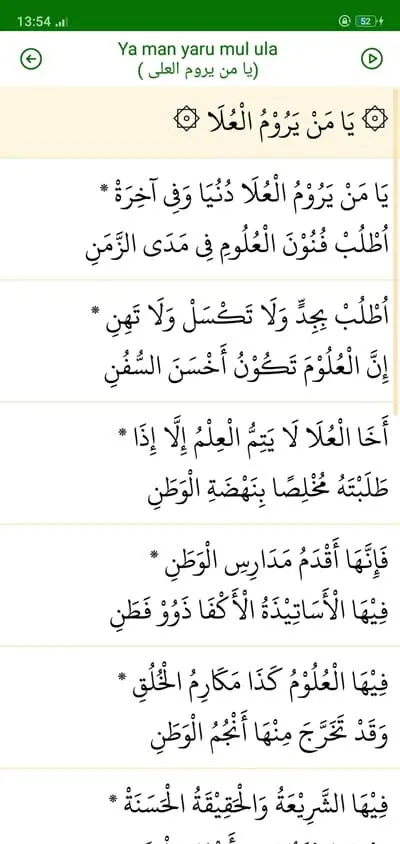 13:54
52
Ya man yaru mul ula
(يا من يروم العلى )
۞ يَا مَنْ يَرُوْمُ الْعُلَا ۞
يَا مَنْ يَرُوْمُ الْعُلَا دُنْيَا وَفِي آخِرَةْ *
اُطْلُبْ فُنُوْنَ الْعُلُومِ فِى مَدَى الزَّمَنِ
اُطْلُبْ بِجِدٍّ وَلَا تَكْسَلْ وَلَا تَهِنِ *
إِنَّ الْعُلُوْمَ تَكُوْنُ أَحْسَنَ السُّفُنِ
أَخَا الْعُلَا لَا يَتِمُّ الْعِلْمُ إِلَّا إِذَا *
طَلَبْتَهُ مُخْلِصًا بِنَهْضَةِ الْوَطَنِ
فَإِنَّهَا أَقْدَمُ مَدَارِسِ الْوَطَنِ *
فِيْهَا الْأَسَاتِيْذَةُ الْأَكْفَا ذَوُوْ فَطَنِ
فِيْهَا الْعُلُوْمُ كَذَا مَكَارِمُ الْخُلُقِ *
وَقَدْ تَخَرَّجَ مِنْهَا أَنْجُمُ الْوَطَنِ
فِيْهَا الشَّرِيْعَةُ وَالْحَقِيْقَةُ الْحَسَنَةْ *